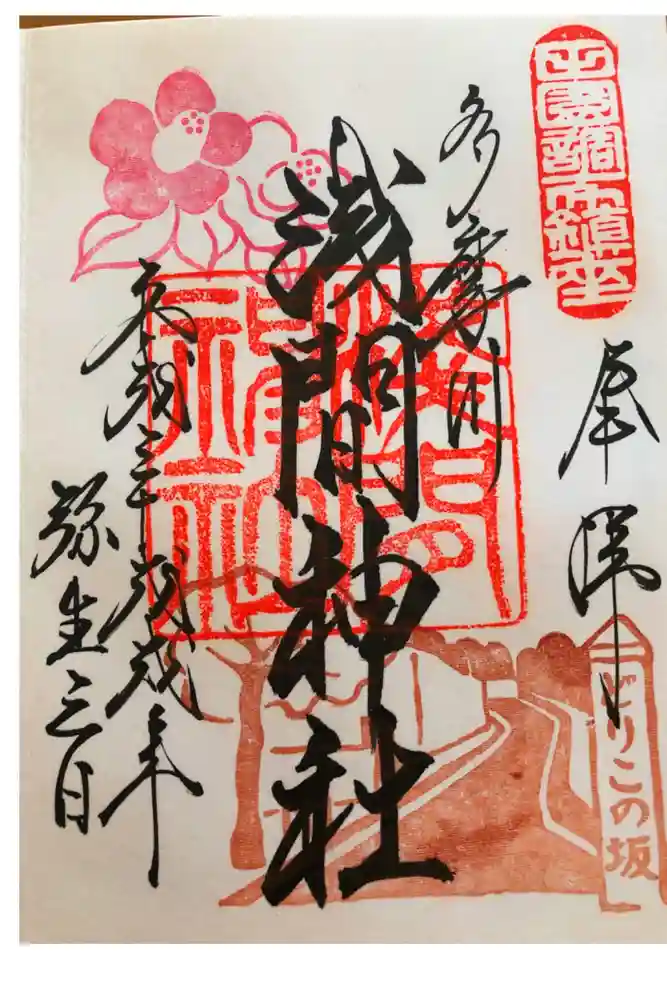 田園調布鎮座
奉拝
どりこの坂
多摩川
浅間神社
淺間神社
平成三十歳戊戌年
弥生三日